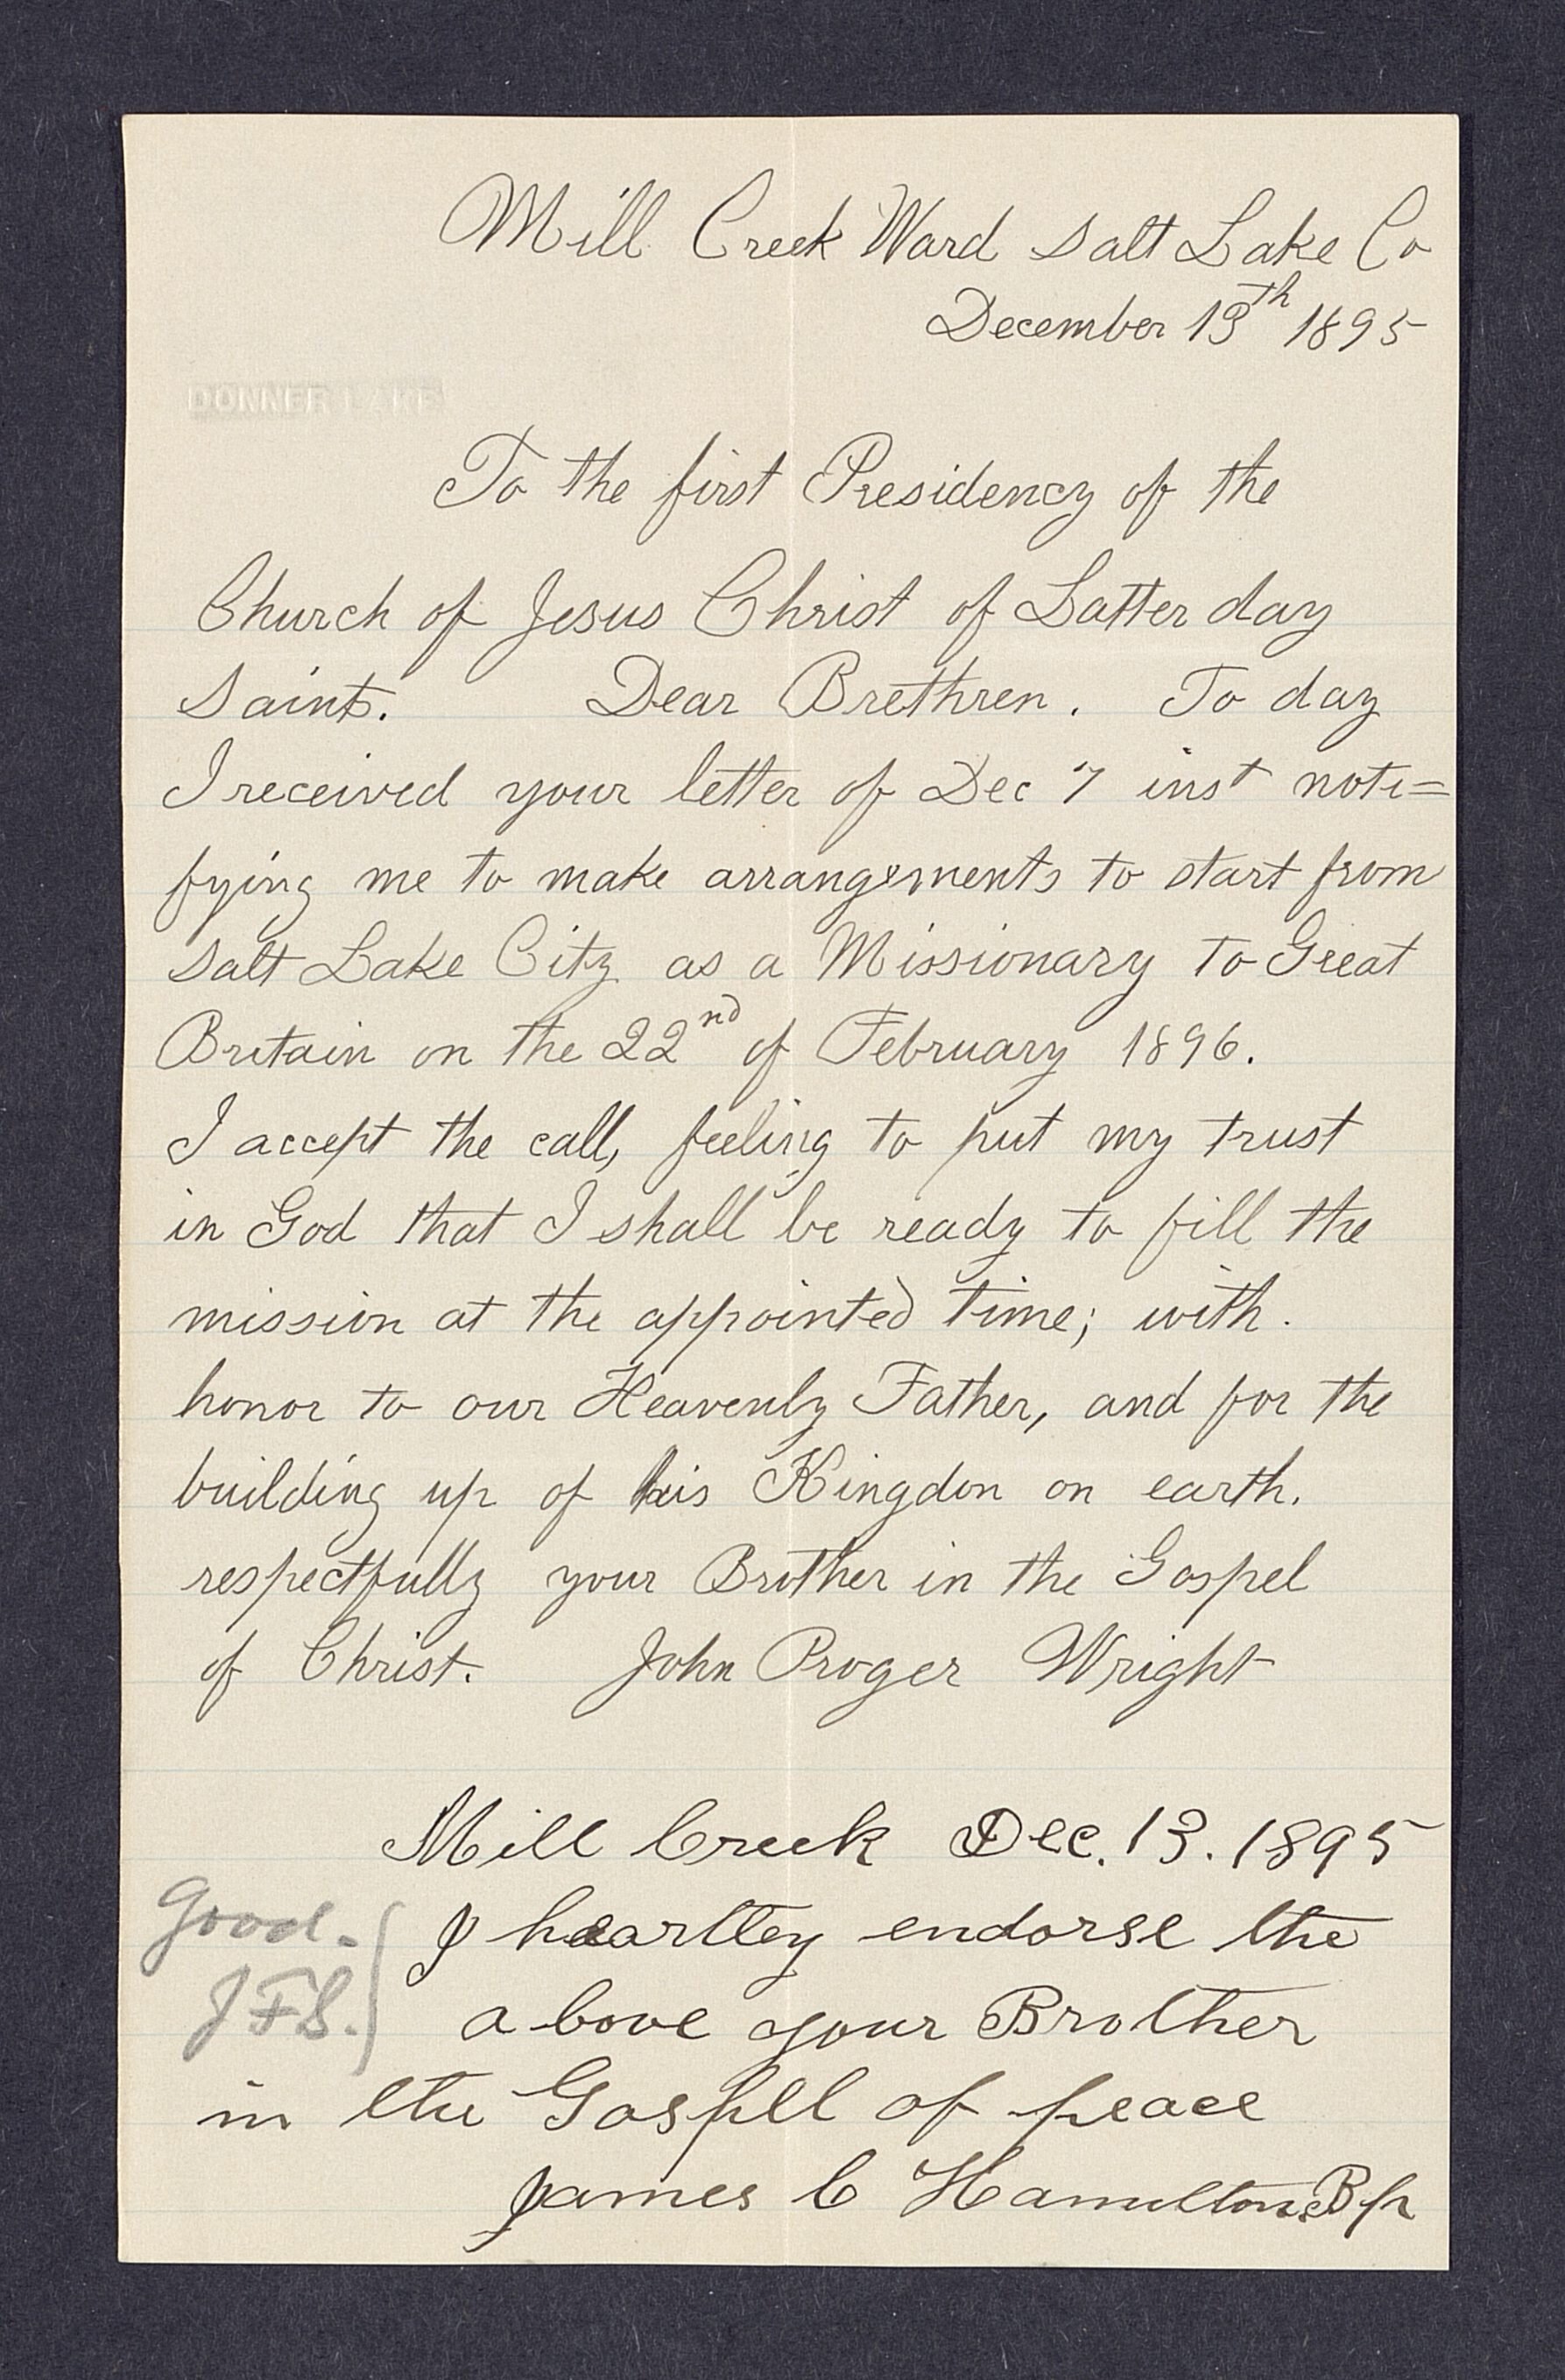 Mill Creek Ward Salt Lake Co
December 13th 1895
DONNER LAKE
To the first Presidency of the
Church of Jesus Christ of Latter day
Saints. Dear Brethren. To day
I received your letter of Dec 7 inst noti=
fying me to make arrangements to start from
Salt Lake City as a Missionary to Great
Britain on the 22nd of February 1896.
I accept the call, feeling to put my trust
in God that I shall be ready to fill the
mission at the appointed time; with.
honor to our Heavenly Father, and for the
building up of his Kingdon on earth.
respectfully your Brother in the Gospel
of Christ. John Proger Wright
Mill Creek Dec. 13. 1895
Good. I heartley endorse the
JFS. above your Brother
in the Gospell of peace
James C Hamilton Bp